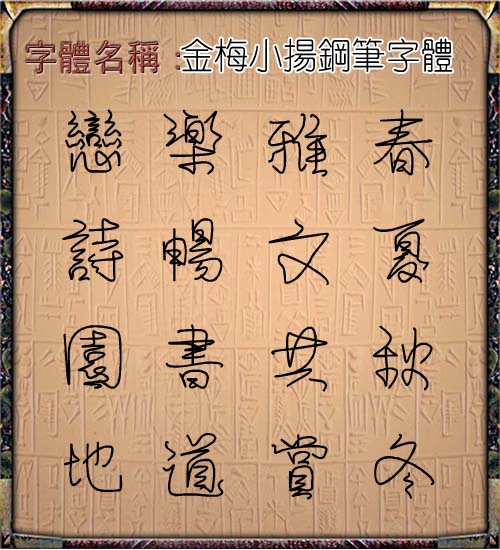 字體名稱 :金梅小揚鋼筆字體
春夏秋冬
雅文共賞
樂暢書道
戀詩園地